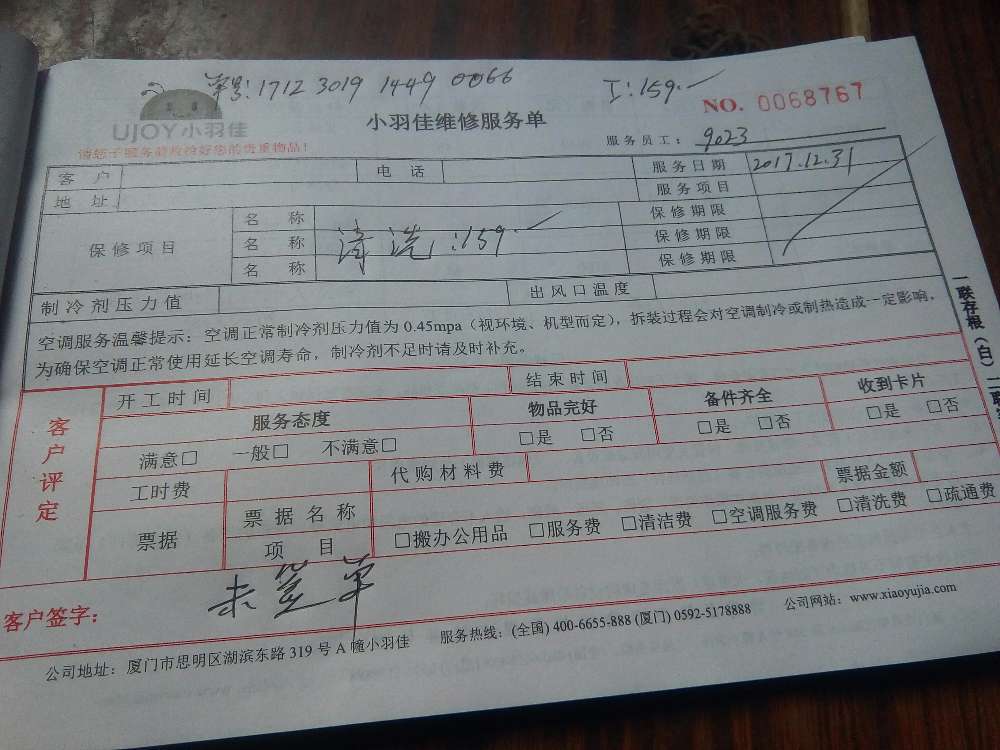 单号:1712 3019 1449 0066
工:159.
NO. 0068767
UJOY小羽佳
小羽佳维修服务单
服务员工: 9023
请您于服务前收检好您的贵重物品!
客 户 电 话 服务日期 2017.12.31
地 址 服务项目
保修项目 名 称 保修期限
名 称 清洗:159. 保修期限
名 称 保修期限
制冷剂压力值 出风口温度
空调服务温馨提示:空调正常制冷剂压力值为 0.45mpa(视环境、机型而定),拆装过程会对空调制冷或制热造成一定影响,
为确保空调正常使用延长空调寿命,制冷剂不足时请及时补充。
一联存根(白)二联
客户评定
开工时间 结束时间
服务态度 物品完好 备件齐全 收到卡片
满意□ 一般□ 不满意□ □是 □否 □是 □否 □是 □否
工时费 代购材料费 票据金额
票据 票据名称
项 目 □搬办公用品 □服务费 □清洁费 □空调服务费 □清洗费 □疏通费
客户签字: 未签单
公司地址:厦门市思明区湖滨东路 319 号 A 幢小羽佳 服务热线:(全国) 400-6655-888 (厦门) 0592-5178888 公司网站:www.xiaoyujia.com